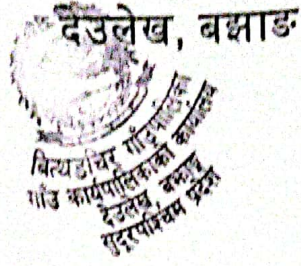 देउलेख, बझाङ
बित्थडचिर गाउँपालिका
गाउँ कार्यपालिकाको कार्यालय
देउलेख, बझाङ
सुदूरपश्चिम प्रदेश